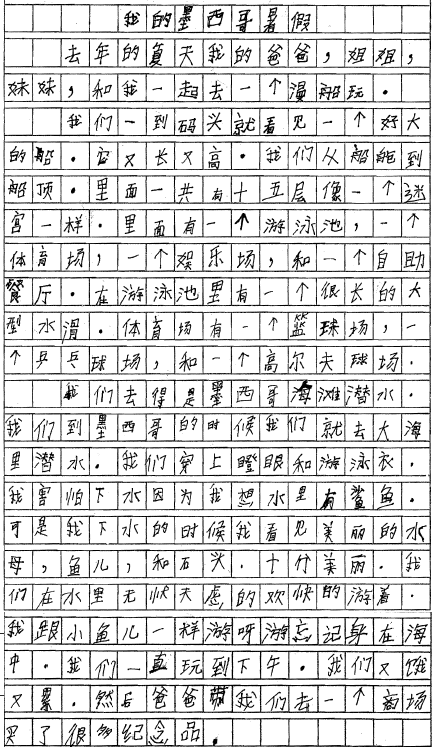 我的墨西哥暑假
去年的夏天我的爸爸，姐姐，
妹妹，和我一起去一个漫船玩．
我们一到码头就看见一个好大
的船．它又长又高．我们从船舱到
船顶．里面一共有十五层像一个迷
宫一样．里面有一个游泳池，一个
体育场，一个娱乐场，和一个自助
餐厅．在游泳池里有一个很长的大
型水滑．体育场有一个篮球场，一
个乒乓球场，和一个高尔夫球场．
我们去得是墨西哥海滩潜水．
我们到墨西哥的时候我们就去大海
里潜水．我们穿上瞪眼和游泳衣．
我害怕下水因为我想水里有鲨鱼．
可是我下水的时候我看见美丽的水
母，鱼儿，和石头．十什美丽．我
们在水里无忧无虑的欢快的游着．
我跟小鱼儿一样游呀游忘记身在海
中．我们一直玩到下午．我们又饿
又累．然后爸爸带我们去一个商场
买了很多纪念品．